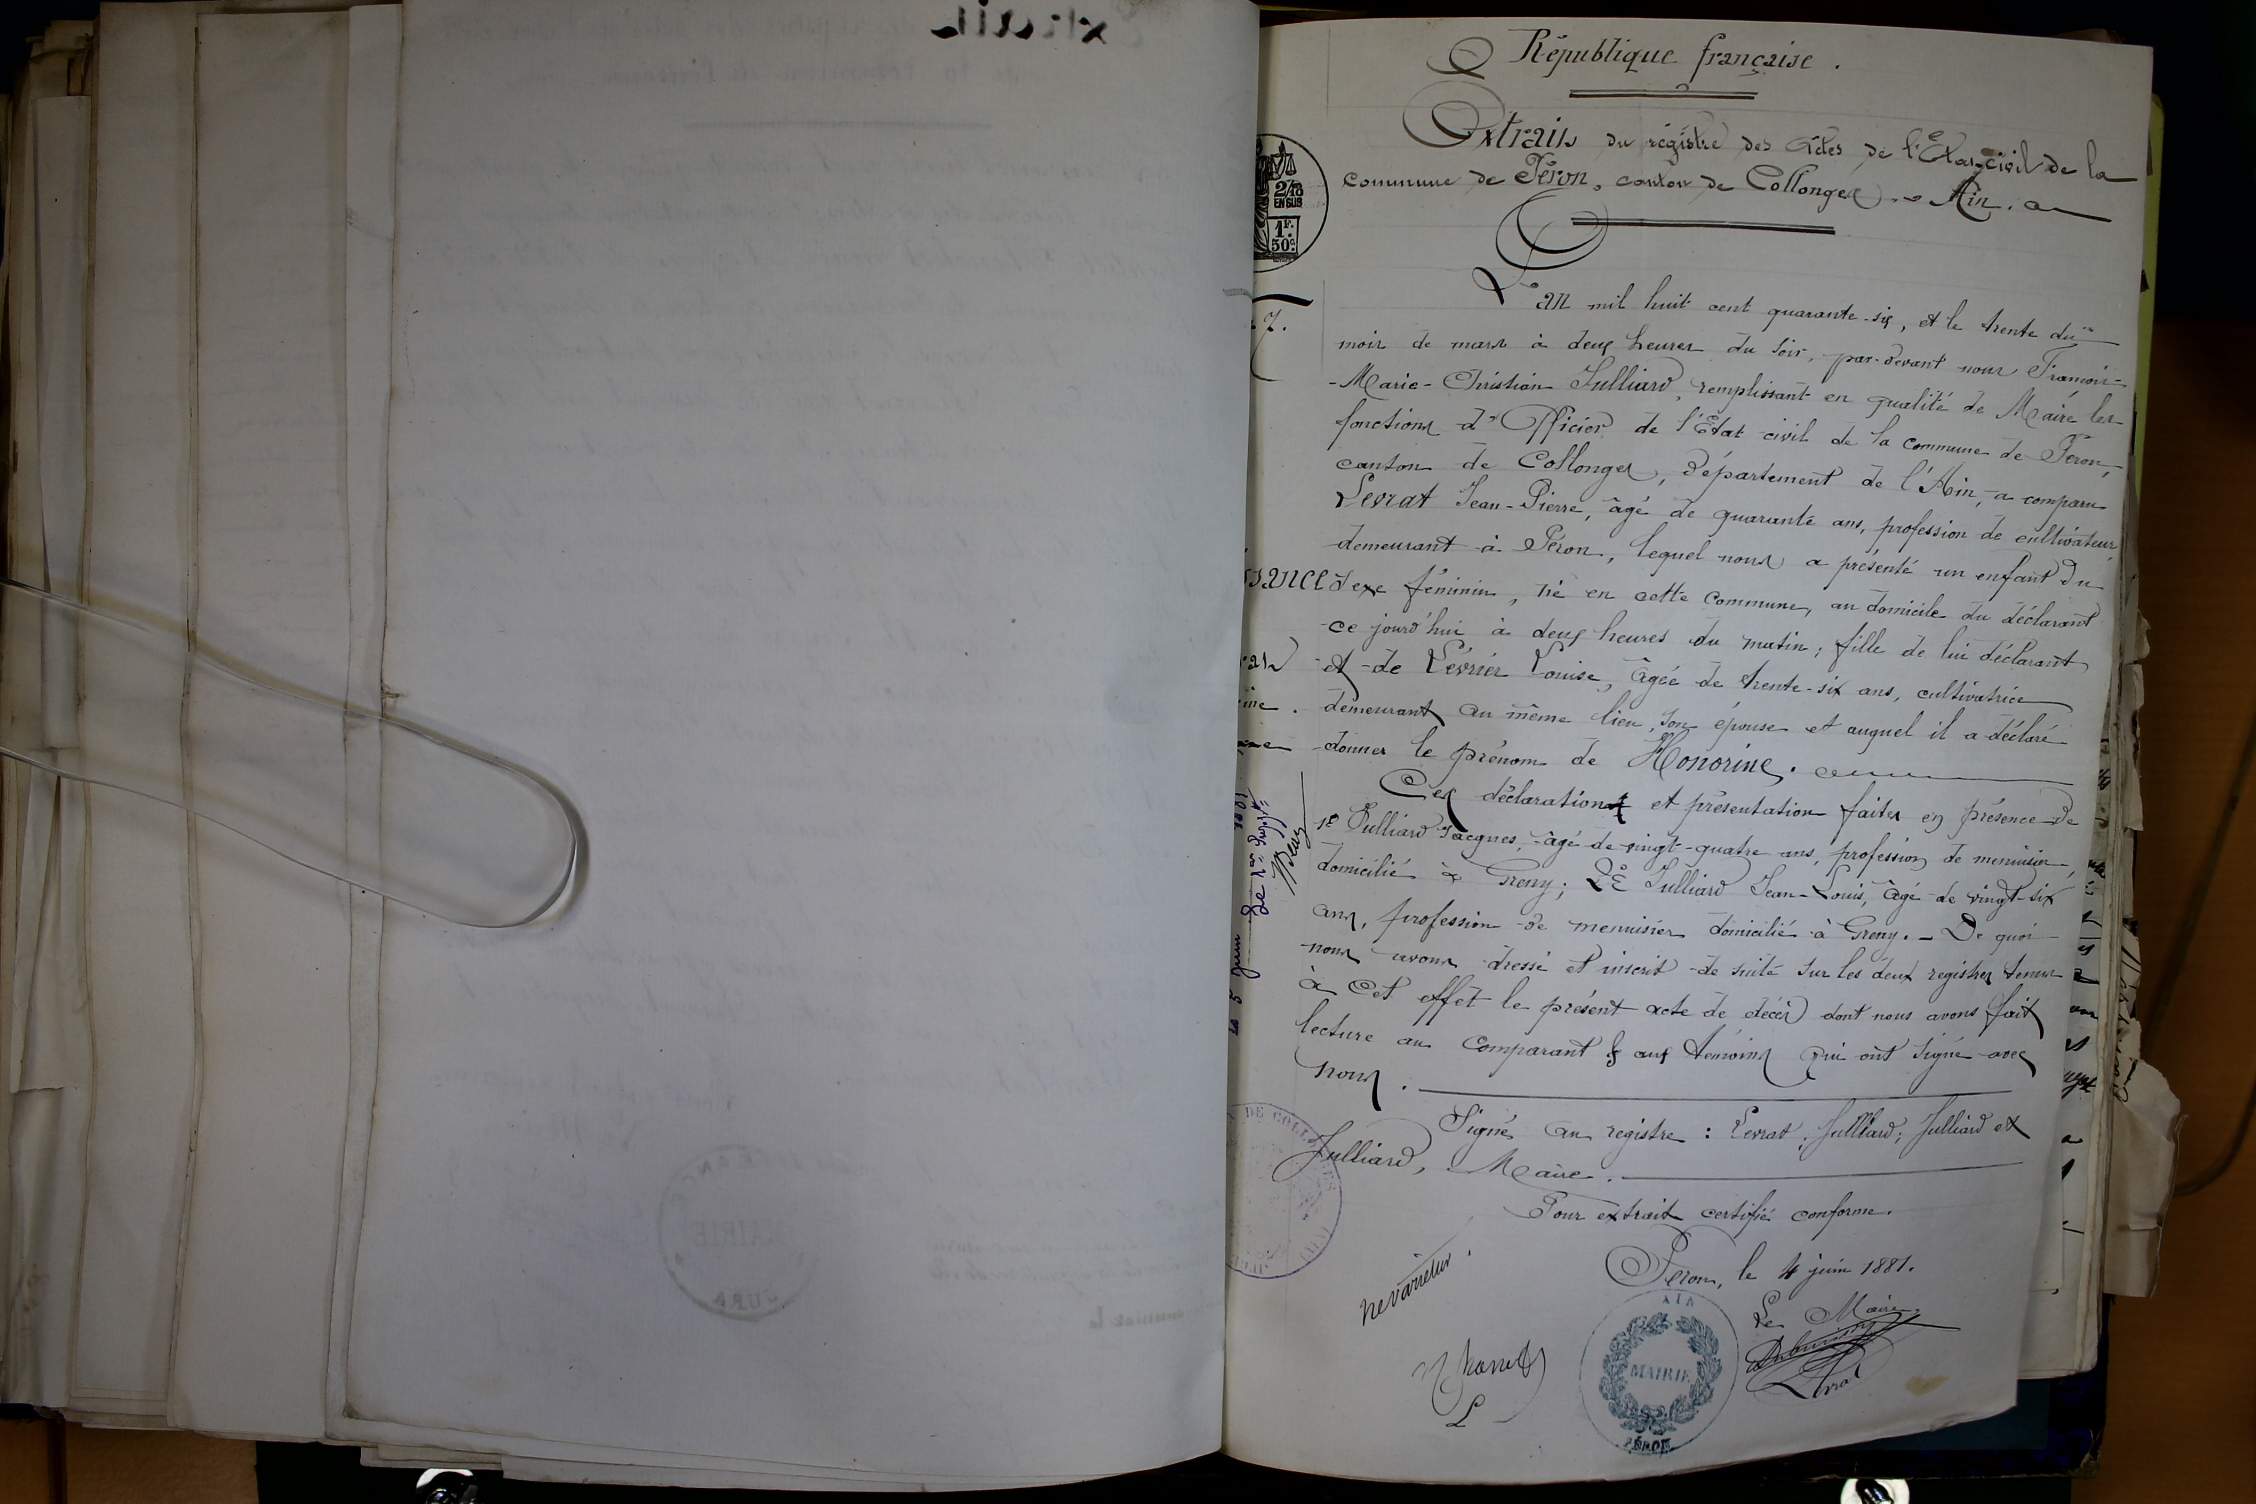 République française.
Extrait du régistre des Actes de l'Etat-civil de la
commune de Péron, canton de Collonges. Ain.
2/10
EN SUS
1F.
50c.
L'an mil huit cent quarante-six, et le trente du
mois de mars à deux heures du soir, par-devant nous François-
-Marie-Christian Julliard, remplissant en qualité de Maire les
fonctions d'Officier de l'Etat civil de la commune de Péron,
canton de Collonges, Département de l'Ain, a comparu
Levrat Jean-Pierre, âgé de quarante ans, profession de cultivateur,
demeurant à Péron, lequel nous a présenté un enfant du
sexe féminin, né en cette commune, au domicile du déclarant
ce jourd'hui à deux heures du matin; fille de lui déclarant
et de Lévrier Louise, âgée de trente-six ans, cultivatrice
demeurant au même lieu, son épouse et auquel il a déclaré
donner le prénom de Honorine.
Ces déclaration et présentation faites en présence de
1e Julliard Jacques, âgé de vingt-quatre ans, profession de menuisier,
domicilié à Greny; 2e Julliard Jean-Louis, âgé de vingt-six
ans, profession de menuisier domicilié à Greny. - De quoi
nous avons dressé et inscrit de suite sur les deux registres tenus
à cet effet le présent acte de décès dont nous avons fait
lecture au comparant & aux témoins qui ont signé avec
nous.
Signé au registre : Levrat, Julliard; Julliard et
Julliard, Maire.
Pour extrait certifié conforme.
Péron, le 4 juin 1881.
Le Maire.
ne varietur.
AIN
MAIRIE
PÉRON